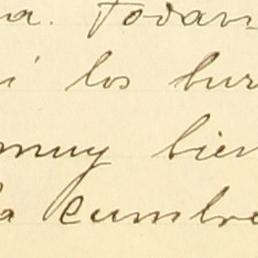 a. Todav
i los bur
muy bien
a cumbre